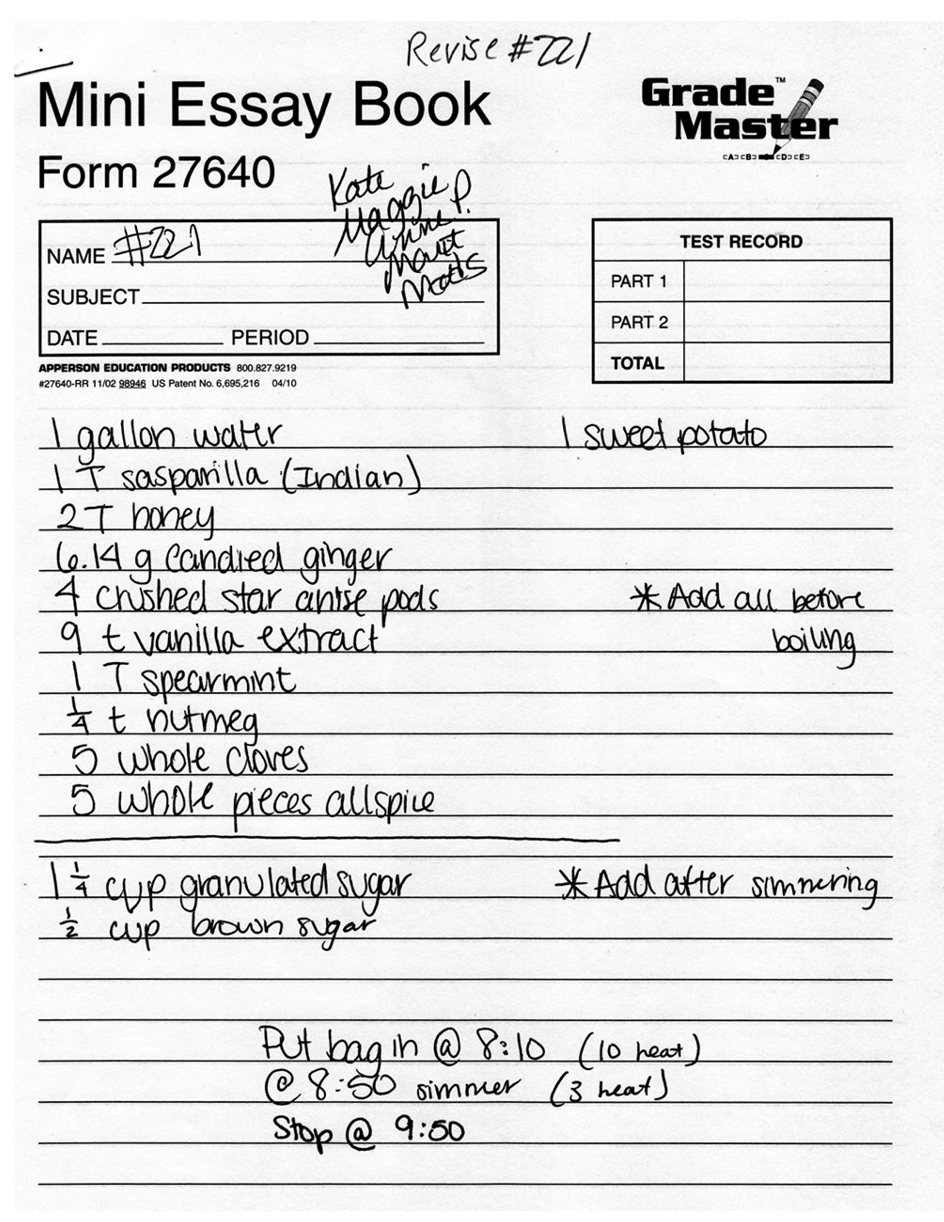 Revise #221
Mini Essay Book
Form 27640
Grade™
Master
A B C D E
Kate
Maggie
Anne P.
Matt
NAME #221
SUBJECT
DATE PERIOD
TEST RECORD
PART 1
PART 2
TOTAL
APPERSON EDUCATION PRODUCTS 800.827.9219
#27640-RR 11/02 98946 US Patent No. 6,695,216 04/10
1 gallon water 1 sweet potato
1 T sasparilla (Indian)
2 T honey
6.14 g candied ginger
4 crushed star anise pods *Add all before
9 t vanilla extract boiling
1 T spearmint
1/4 t nutmeg
5 whole cloves
5 whole pieces allspice
1 1/4 cup granulated sugar *Add after simmering
1/2 cup brown sugar
Put bag in @ 8:10 (10 heat)
@ 8:50 simmer (3 heat)
Stop @ 9:50